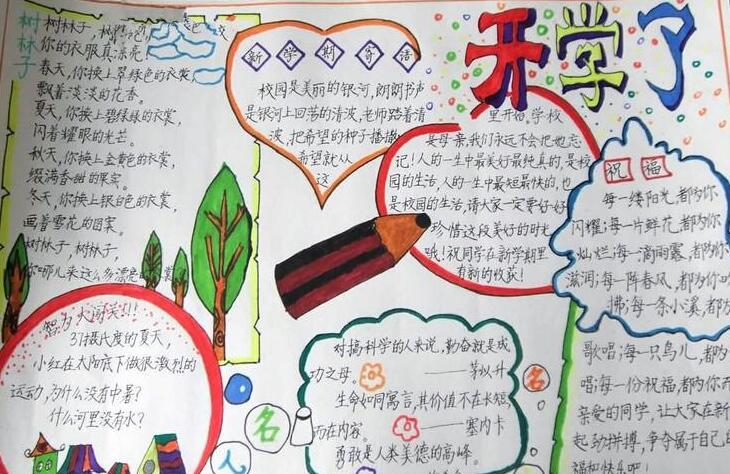 开学了
树林子
树林子,树林子,
你的衣服真漂亮!
春天,你换上翠绿色的衣裳,
飘着淡淡的花香。
夏天,你换上碧绿绿的衣裳,
闪着耀眼的光芒。
秋天,你换上金黄色的衣裳,
缀满香甜的果实。
冬天,你换上银白色的衣裳,
画着雪花的图案。
树林子,树林子,
你哪儿来这么多漂亮的衣裳
新学期寄语
校园是美丽的银河,朗朗书声
是银河上回荡的清波,老师踏着清
波,把希望的种子播撒
希望就从
这
里开始,学校
是母亲,我们永远不会把她忘
记!人的一生中最美好最纯真的,是校
园的生活,人的一生中最短最快的,也
是校园的生活,请大家一定要好好
珍惜这段美好的时光
哦!祝同学在新学期里
有新的收获!
祝福
每一缕阳光,都为你
闪耀;每一片鲜花,都为你
灿烂;每一滴雨露,都为你
滋润;每一阵春风,都为你吹
拂;每一条小溪,都为
歌唱;每一只鸟儿,都为
唱;每一份祝福,都为你而
亲爱的同学,让大家在新
起劲拼搏,争夺属于自己
福和快乐吧!
智力大闯关!!!
37摄氏度的夏天,
小红在太阳底下做很激烈的
运动,为什么没有中暑?
什么河里没有水?
名人名
对搞科学的人来说,勤奋就是成
功之母。——茅以升
生命如同寓言,其价值不在长短,
而在内容。——塞内卡
勇敢是人类美德的高峰。